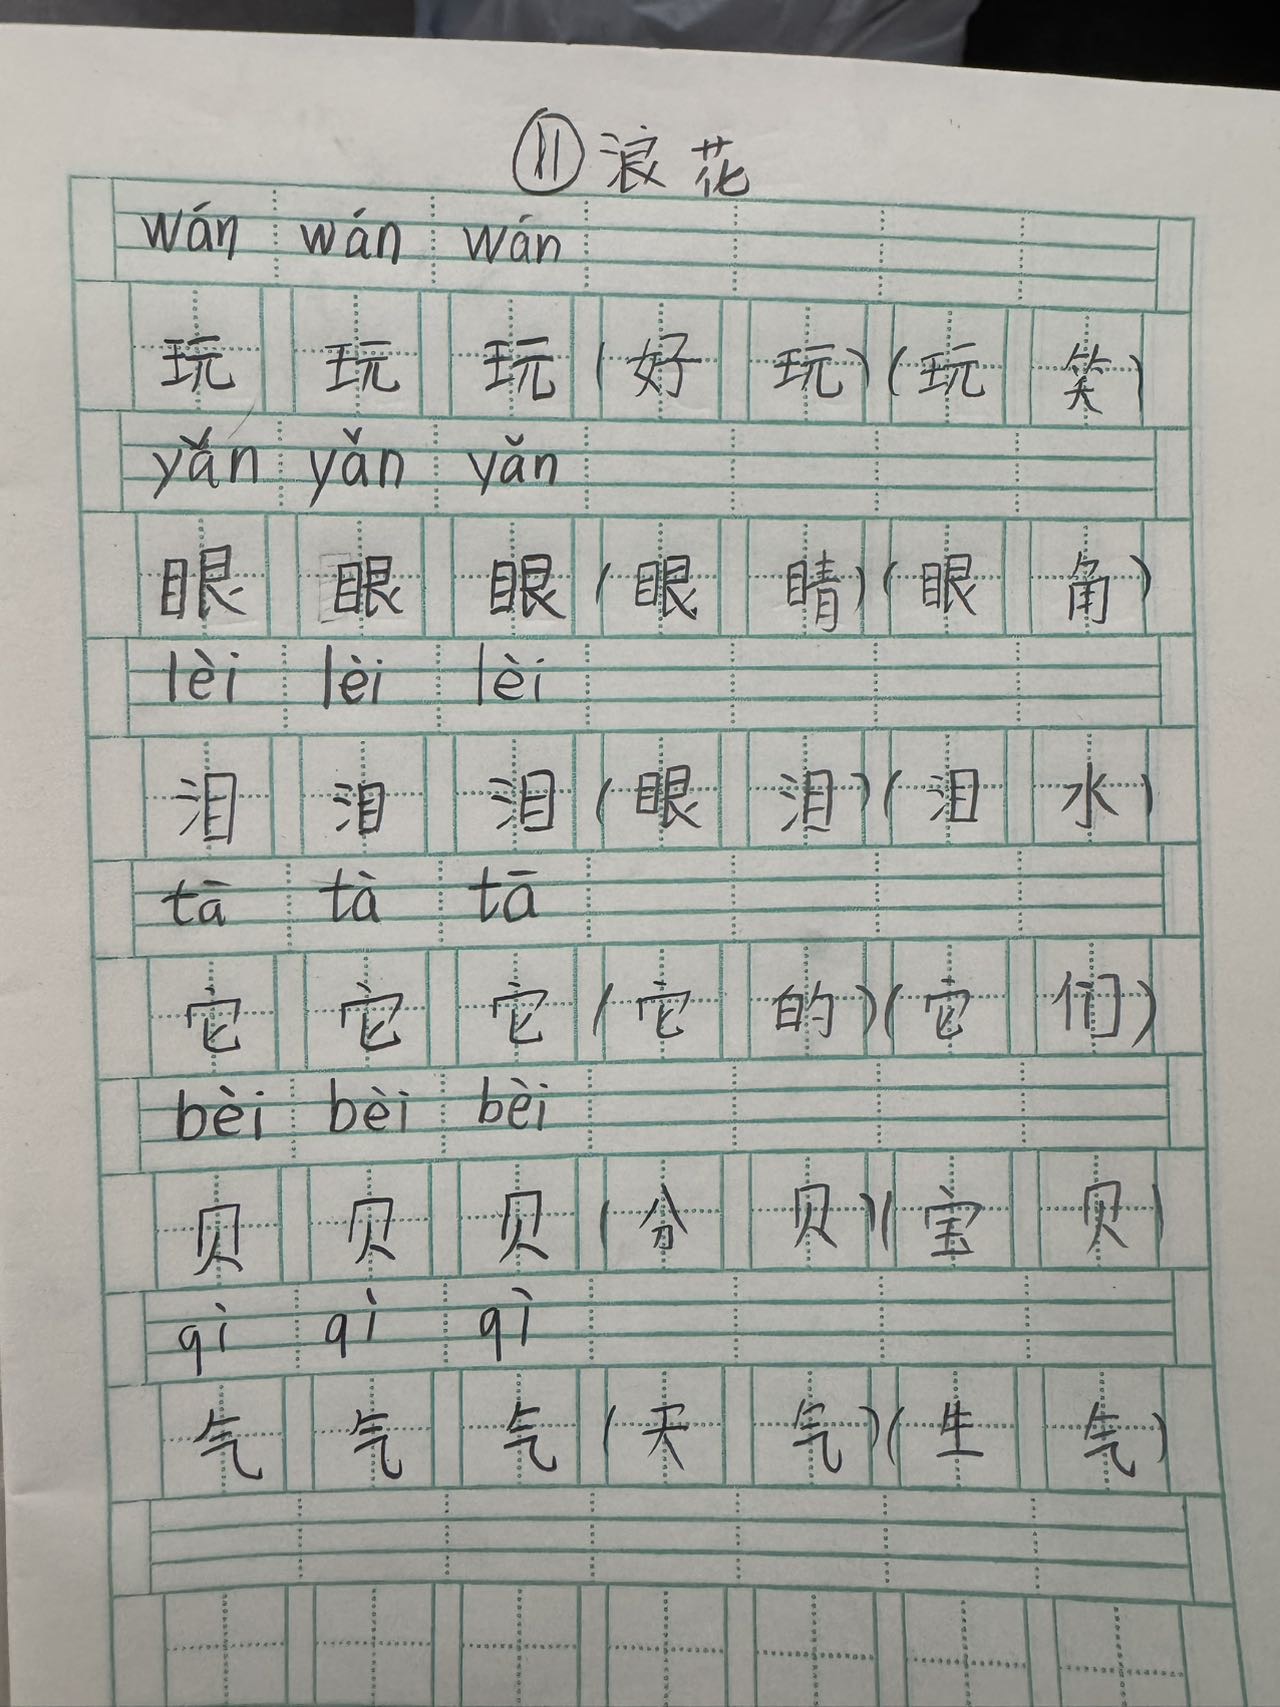 ⑪ 浪花
wán wán wán
玩 玩 玩 (好 玩) (玩 笑)
yǎn yǎn yǎn
眼 眼 眼 (眼 睛) (眼 角)
lèi lèi lèi
泪 泪 泪 (眼 泪) (泪 水)
tā tà tā
它 它 它 (它 的) (它 们)
bèi bèi bèi
贝 贝 贝 (分 贝) (宝 贝)
qì qì qì
气 气 气 (天 气) (生 气)